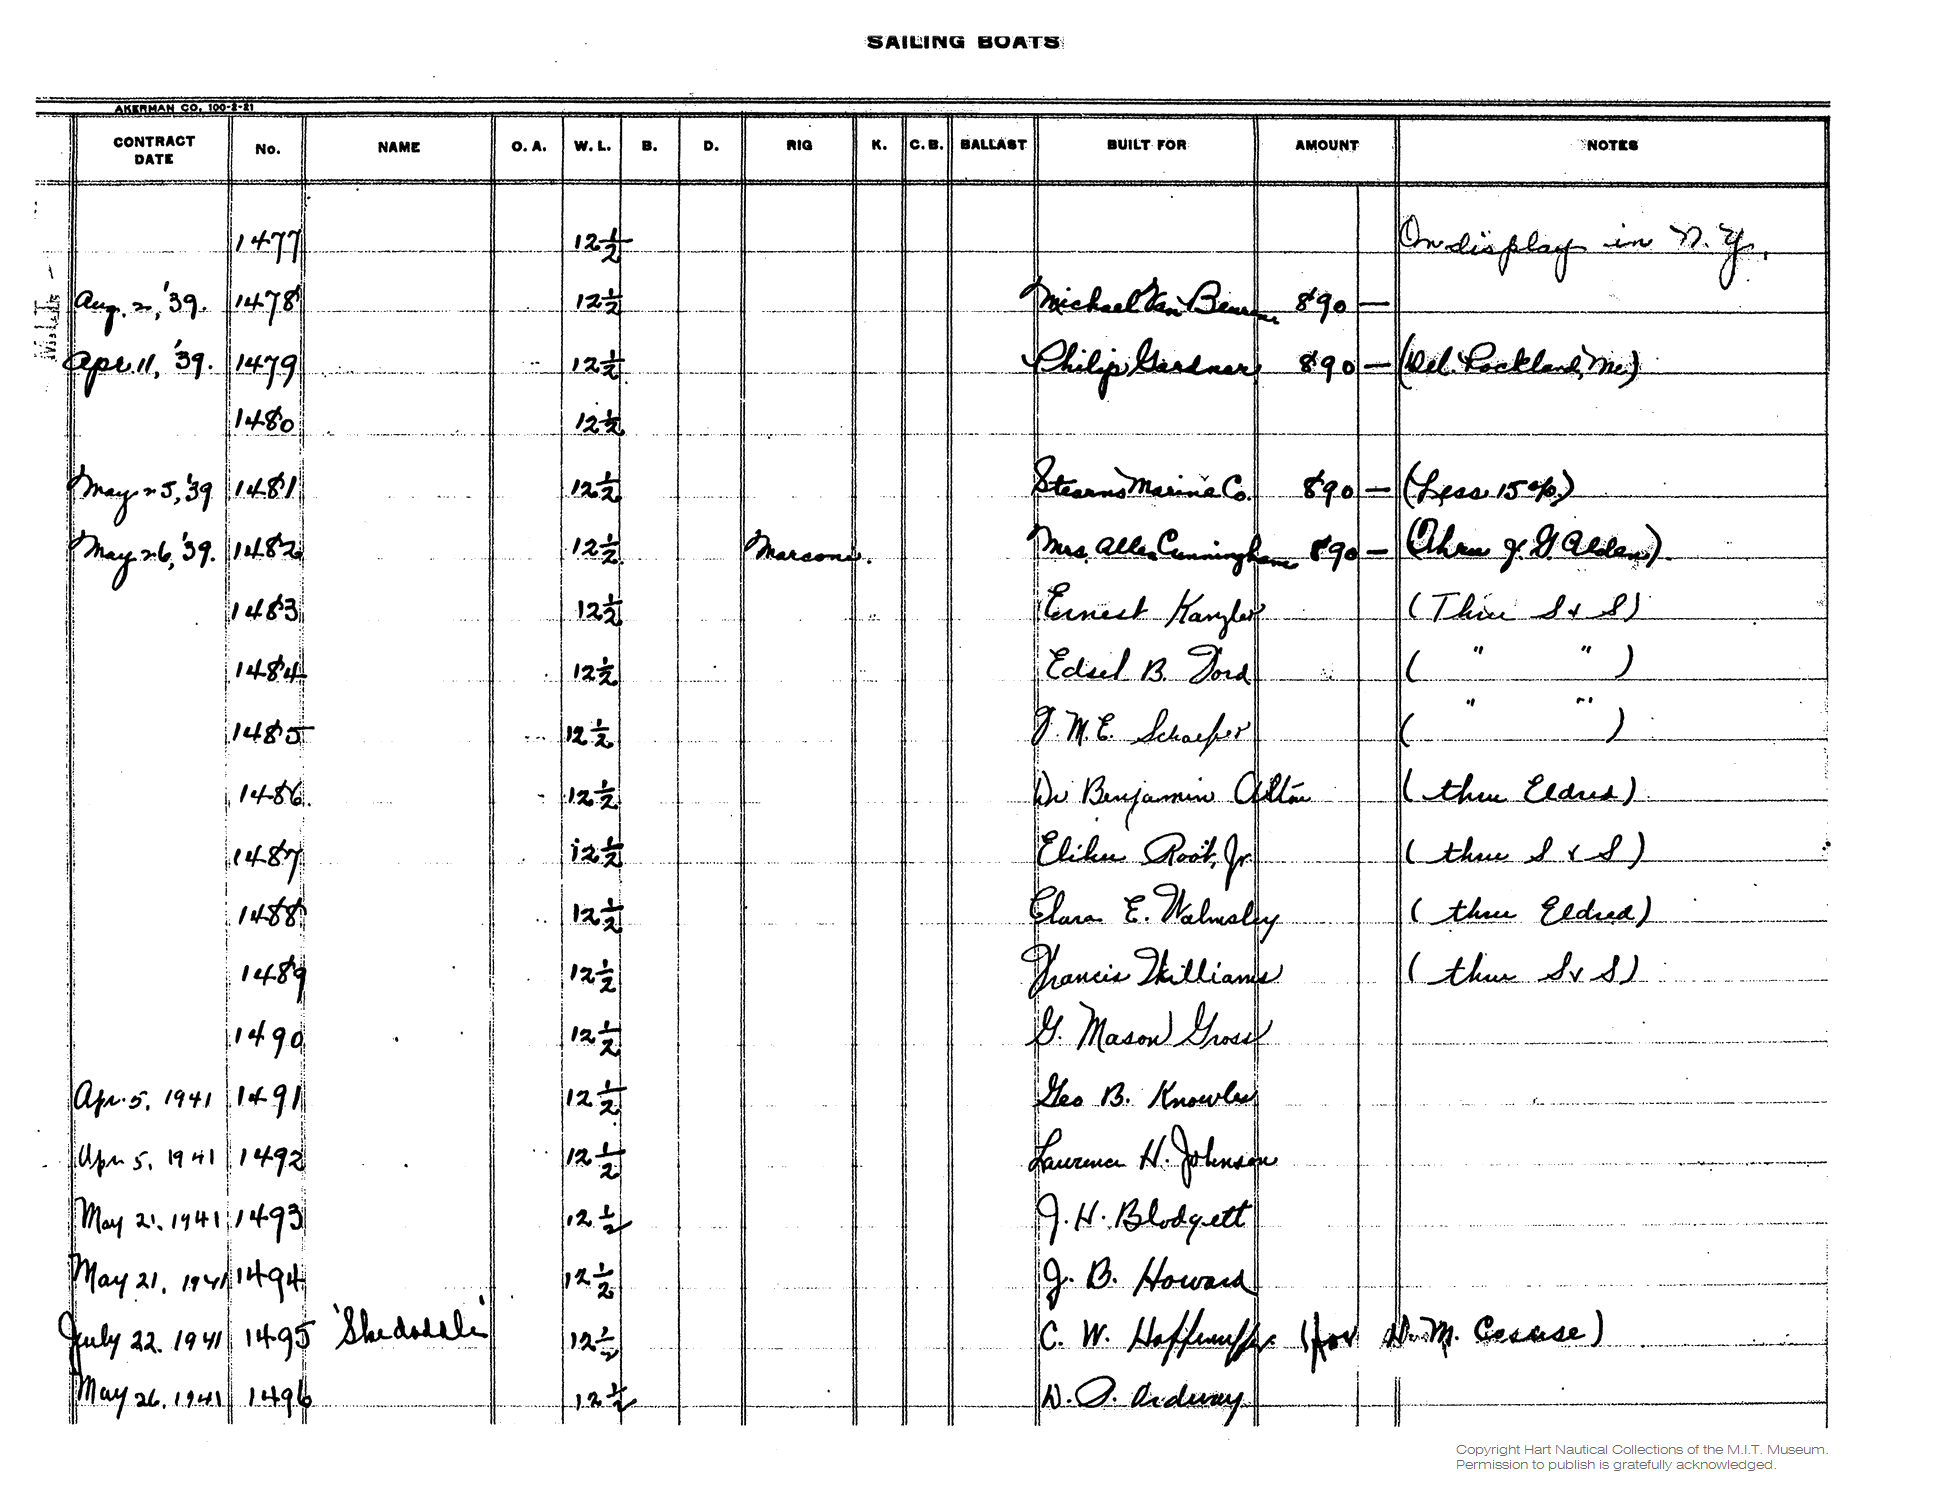 SAILING BOATS
AKERMAN CO. 100-2-21
CONTRACT DATE No. NAME O. A. W. L. B. D. RIG K. C. B. BALLAST BUILT FOR AMOUNT NOTES
1477 12 1/2 On display in N. Y.
Aug. 2, '39. 1478 12 1/2 Michael Van Beuren 890 —
Apr. 11, '39. 1479 12 1/2 Philip Gardner 890 — (Del. Rockland, Me.)
1480 12 1/2
May 25, '39 1481 12 1/2 Stearns Marine Co. 890 — (Less 15%)
May 26, '39. 1482 12 1/2 Marconi. Mrs. Allen Cunningham 890 — (Thru J. G. Alden)
1483 12 1/2 Ernest Kanzler (Thru S & S)
1484 12 1/2 Edsel B. Ford ( " " )
1485 12 1/2 J. M. E. Schaefer ( " " )
1486. 12 1/2 Dr Benjamin Alton (thru Eldred)
1487 12 1/2 Elihu Root, Jr. (thru S & S)
1488 12 1/2 Clara E. Walmsley (thru Eldred)
1489 12 1/2 Francis Williams (thru S & S)
1490 12 1/2 G. Mason Gross
Apr. 5, 1941 1491 12 1/2 Geo B. Knowles
Apr 5, 1941 1492 12 1/2 Laurence H. Johnson
May 21, 1941 1493 12 1/2 J. H. Blodgett
May 21, 1941 1494 12 1/2 J. B. Howard
July 22, 1941 1495 12 1/2 C. W. (for D. M.
May 26, 1941 1496 12 1/2 D. P. Ordway
Copyright Hart Nautical Collections of the M.I.T. Museum.
Permission to publish is gratefully acknowledged.